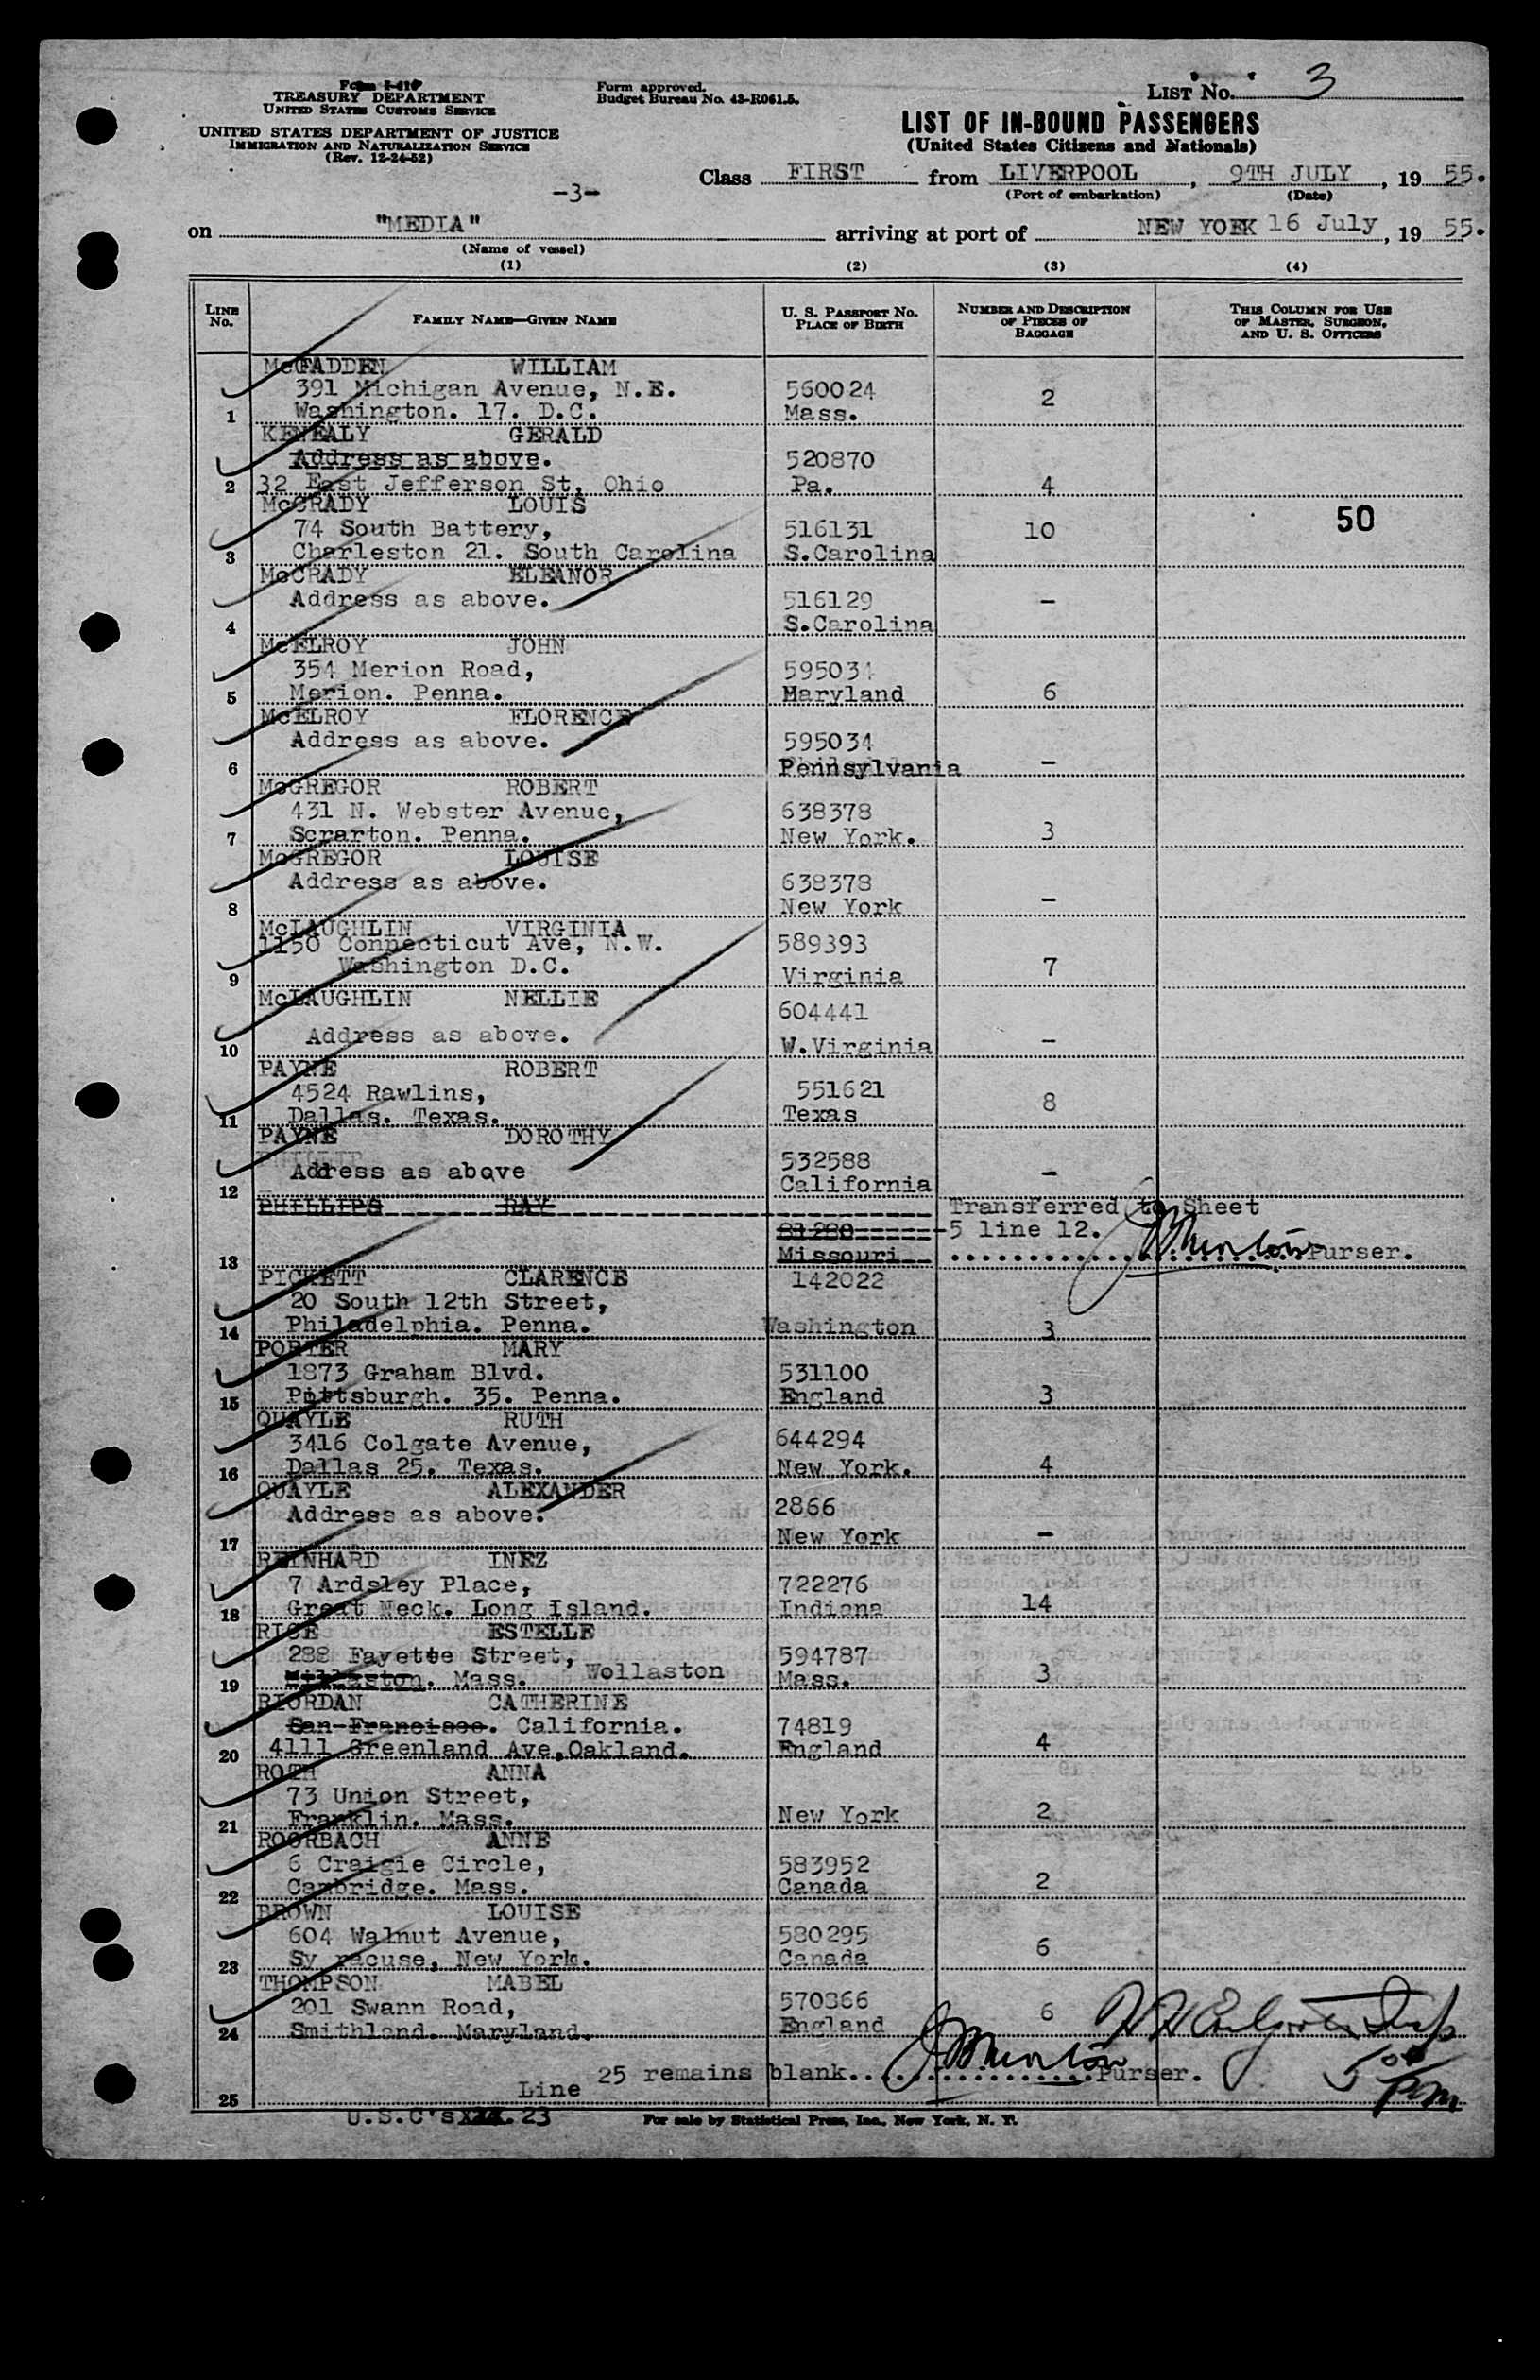 Form I-416
TREASURY DEPARTMENT
UNITED STATES CUSTOMS SERVICE
UNITED STATES DEPARTMENT OF JUSTICE
IMMIGRATION AND NATURALIZATION SERVICE
(Rev. 12-24-52)
Form approved.
Budget Bureau No. 43-R061.5.
LIST No. 3
LIST OF IN-BOUND PASSENGERS
(United States Citizens and Nationals)
-3-
Class FIRST from LIVERPOOL, 9TH JULY, 19 55.
(Port of embarkation) (Date)
on "MEDIA" arriving at port of NEW YORK 16 July, 19 55.
(Name of vessel)
(1) (2) (3) (4)
LINE No. FAMILY NAME—GIVEN NAME U. S. PASSPORT No. PLACE OF BIRTH NUMBER AND DESCRIPTION OF PIECES OF BAGGAGE THIS COLUMN FOR USE OF MASTER, SURGEON, AND U. S. OFFICERS
McFADDEN WILLIAM
391 Michigan Avenue, N.E. 560024 2
1 Washington. 17. D.C. Mass.
KENEALY GERALD
Address as above. 520870
2 32 East Jefferson St, Ohio Pa. 4
McCRADY LOUIS 50
74 South Battery, 516131 10
3 Charleston 21. South Carolina S.Carolina
McCRADY ELEANOR
Address as above. 516129 -
4 S.Carolina
McELROY JOHN
354 Merion Road, 595034
5 Merion. Penna. Maryland 6
McELROY FLORENCE
Address as above. 595034
6 Pennsylvania -
McGREGOR ROBERT
431 N. Webster Avenue, 638378
7 Scrarton. Penna. New York. 3
McGREGOR LOUISE
Address as above. 638378
8 New York -
McLAUGHLIN VIRGINIA
1150 Connecticut Ave, N.W. 589393
9 Washington D.C. Virginia 7
McLAUGHLIN NELLIE
604441
10 Address as above. W.Virginia -
PAYNE ROBERT
4524 Rawlins, 551621 8
11 Dallas. Texas. Texas
PAYNE DOROTHY
Address as above 532588 -
12 California
PHILLIPS RAY Transferred to Sheet
81280 5 line 12.
13 Missouri Purser.
PICKETT CLARENCE 142022
20 South 12th Street,
14 Philadelphia. Penna. Washington 3
PORTER MARY
1873 Graham Blvd. 531100
15 Pittsburgh. 35. Penna. England 3
QUAYLE RUTH
3416 Colgate Avenue, 644294
16 Dallas 25. Texas. New York. 4
QUAYLE ALEXANDER
Address as above. 2866
17 New York -
REINHARD INEZ
7 Ardsley Place, 722276
18 Great Neck. Long Island. Indiana 14
RICE ESTELLE
288 Fayette Street, 594787
19 Mass. Wollaston Mass. 3
RIORDAN CATHERINE
San Francisco. California. 74819
20 4111 Greenland Ave, Oakland. England 4
ROTH ANNA
73 Union Street,
21 Franklin. Mass. New York 2
ROORBACH ANNE
6 Craigie Circle, 583952
22 Cambridge. Mass. Canada 2
BROWN LOUISE
604 Walnut Avenue, 580295
23 Sy racuse, New York. Canada 6
THOMPSON MABEL
201 Swann Road, 570866 6
24 Smithland. Maryland. England
25 Line 25 remains blank. Purser. 5 00 Pm
U.S.C's 23
For sale by Statistical Press, Inc., New York, N. Y.